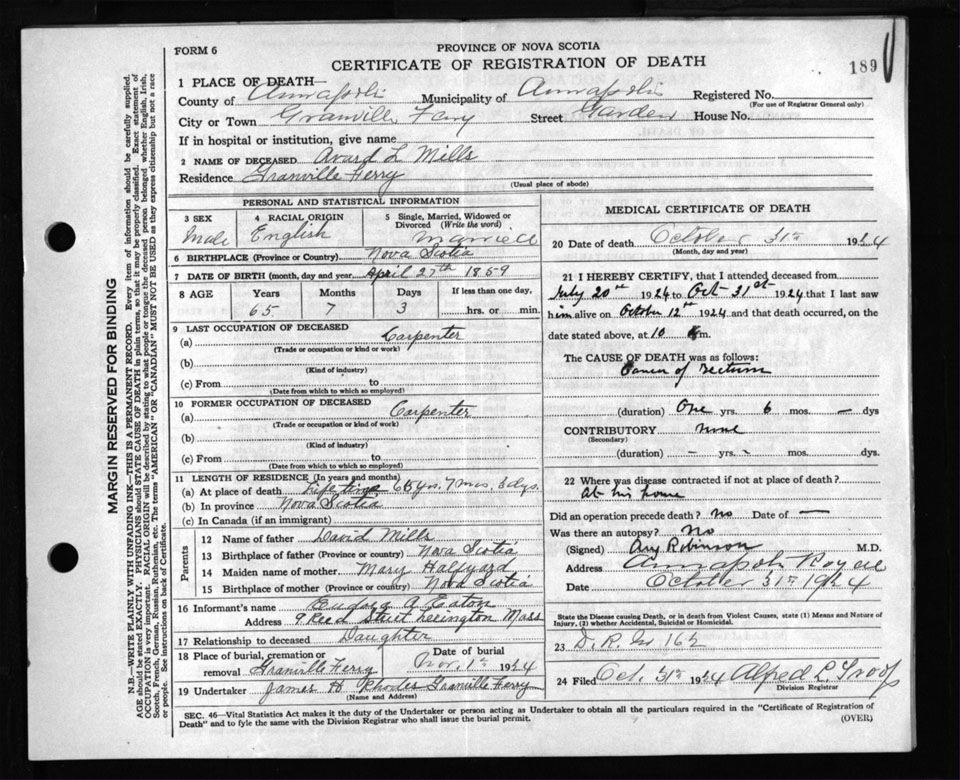 FORM 6
PROVINCE OF NOVA SCOTIA
CERTIFICATE OF REGISTRATION OF DEATH
189
1 PLACE OF DEATH—
County of Annapolis Municipality of Annapolis Registered No.
(For use of Registrar General only)
City or Town Granville Ferry Street Garden House No.
If in hospital or institution, give name
2 NAME OF DECEASED Avard L Mills
Residence Granville Ferry
(Usual place of abode)
PERSONAL AND STATISTICAL INFORMATION
3 SEX Male
4 RACIAL ORIGIN English
5 Single, Married, Widowed or Divorced (Write the word) Married
6 BIRTHPLACE (Province or Country) Nova Scotia
7 DATE OF BIRTH (month, day and year) April 27th 1859
8 AGE Years Months Days If less than one day,
65 7 3 hrs. or min.
9 LAST OCCUPATION OF DECEASED
(a) Carpenter
(Trade or occupation or kind or work)
(b)
(Kind of industry)
(c) From to
(Date from which to which so employed)
10 FORMER OCCUPATION OF DECEASED
(a) Carpenter
(Trade or occupation or kind of work)
(b)
(Kind of industry)
(c) From to
(Date from which to which so employed)
11 LENGTH OF RESIDENCE (In years and months)
(a) At place of death Life time 65 yrs. 7 mos. 3 dys.
(b) In province Nova Scotia
(c) In Canada (if an immigrant)
Parents
12 Name of father David Mills
13 Birthplace of father (Province or country) Nova Scotia
14 Maiden name of mother Mary Halfyard
15 Birthplace of mother (Province or country) Nova Scotia
16 Informant's name A Eaton
Address 9 Reed Street Lexington Mass
17 Relationship to deceased Daughter
18 Place of burial, cremation or removal Granville Ferry
Date of burial Nov. 1st 1924
19 Undertaker James H Rhodes Granville Ferry
(Name and Address)
MEDICAL CERTIFICATE OF DEATH
20 Date of death October 31st 1924
(Month, day and year)
21 I HEREBY CERTIFY, that I attended deceased from
July 20th 1924 to Oct 31st 1924 that I last saw
him alive on October 12th 1924 and that death occurred, on the
date stated above, at 10 m.
The CAUSE OF DEATH was as follows:
Cancer of Rectum
(duration) One yrs. 6 mos. — dys
CONTRIBUTORY None
(Secondary)
(duration) - yrs. - mos. dys.
22 Where was disease contracted if not at place of death?
At his home
Did an operation precede death? No Date of —
Was there an autopsy? No
(Signed) Robinson M.D.
Address Annapolis Royal
Date October 31st 1924
State the Disease causing Death, or in death from Violent Causes, state (1) Means and Nature of Injury, (2) whether Accidental, Suicidal or Homicidal.
23 D.R. 162
24 Filed Oct. 31st 1924 Alfred L
Division Registrar
SEC. 46—Vital Statistics Act makes it the duty of the Undertaker or person acting as Undertaker to obtain all the particulars required in the "Certificate of Registration of
Death" and to fyle the same with the Division Registrar who shall issue the burial permit.
(OVER)
MARGIN RESERVED FOR BINDING
N.B.—WRITE PLAINLY WITH UNFADING INK—THIS IS A PERMANENT RECORD. Every item of information should be carefully supplied.
AGE should be stated EXACTLY. PHYSICIANS should STATE CAUSE OF DEATH in plain terms, so that it may be properly classified. Exact statement of
OCCUPATION is very important. RACIAL ORIGIN will be described by stating to what people or tongue the deceased person belonged whether English, Irish,
Scotch, French, German, Russian, Ruthenian, etc. The terms "AMERICAN" or "CANADIAN" MUST NOT BE USED as they express citizenship but not a race
or people. See instructions on back of Certificate.